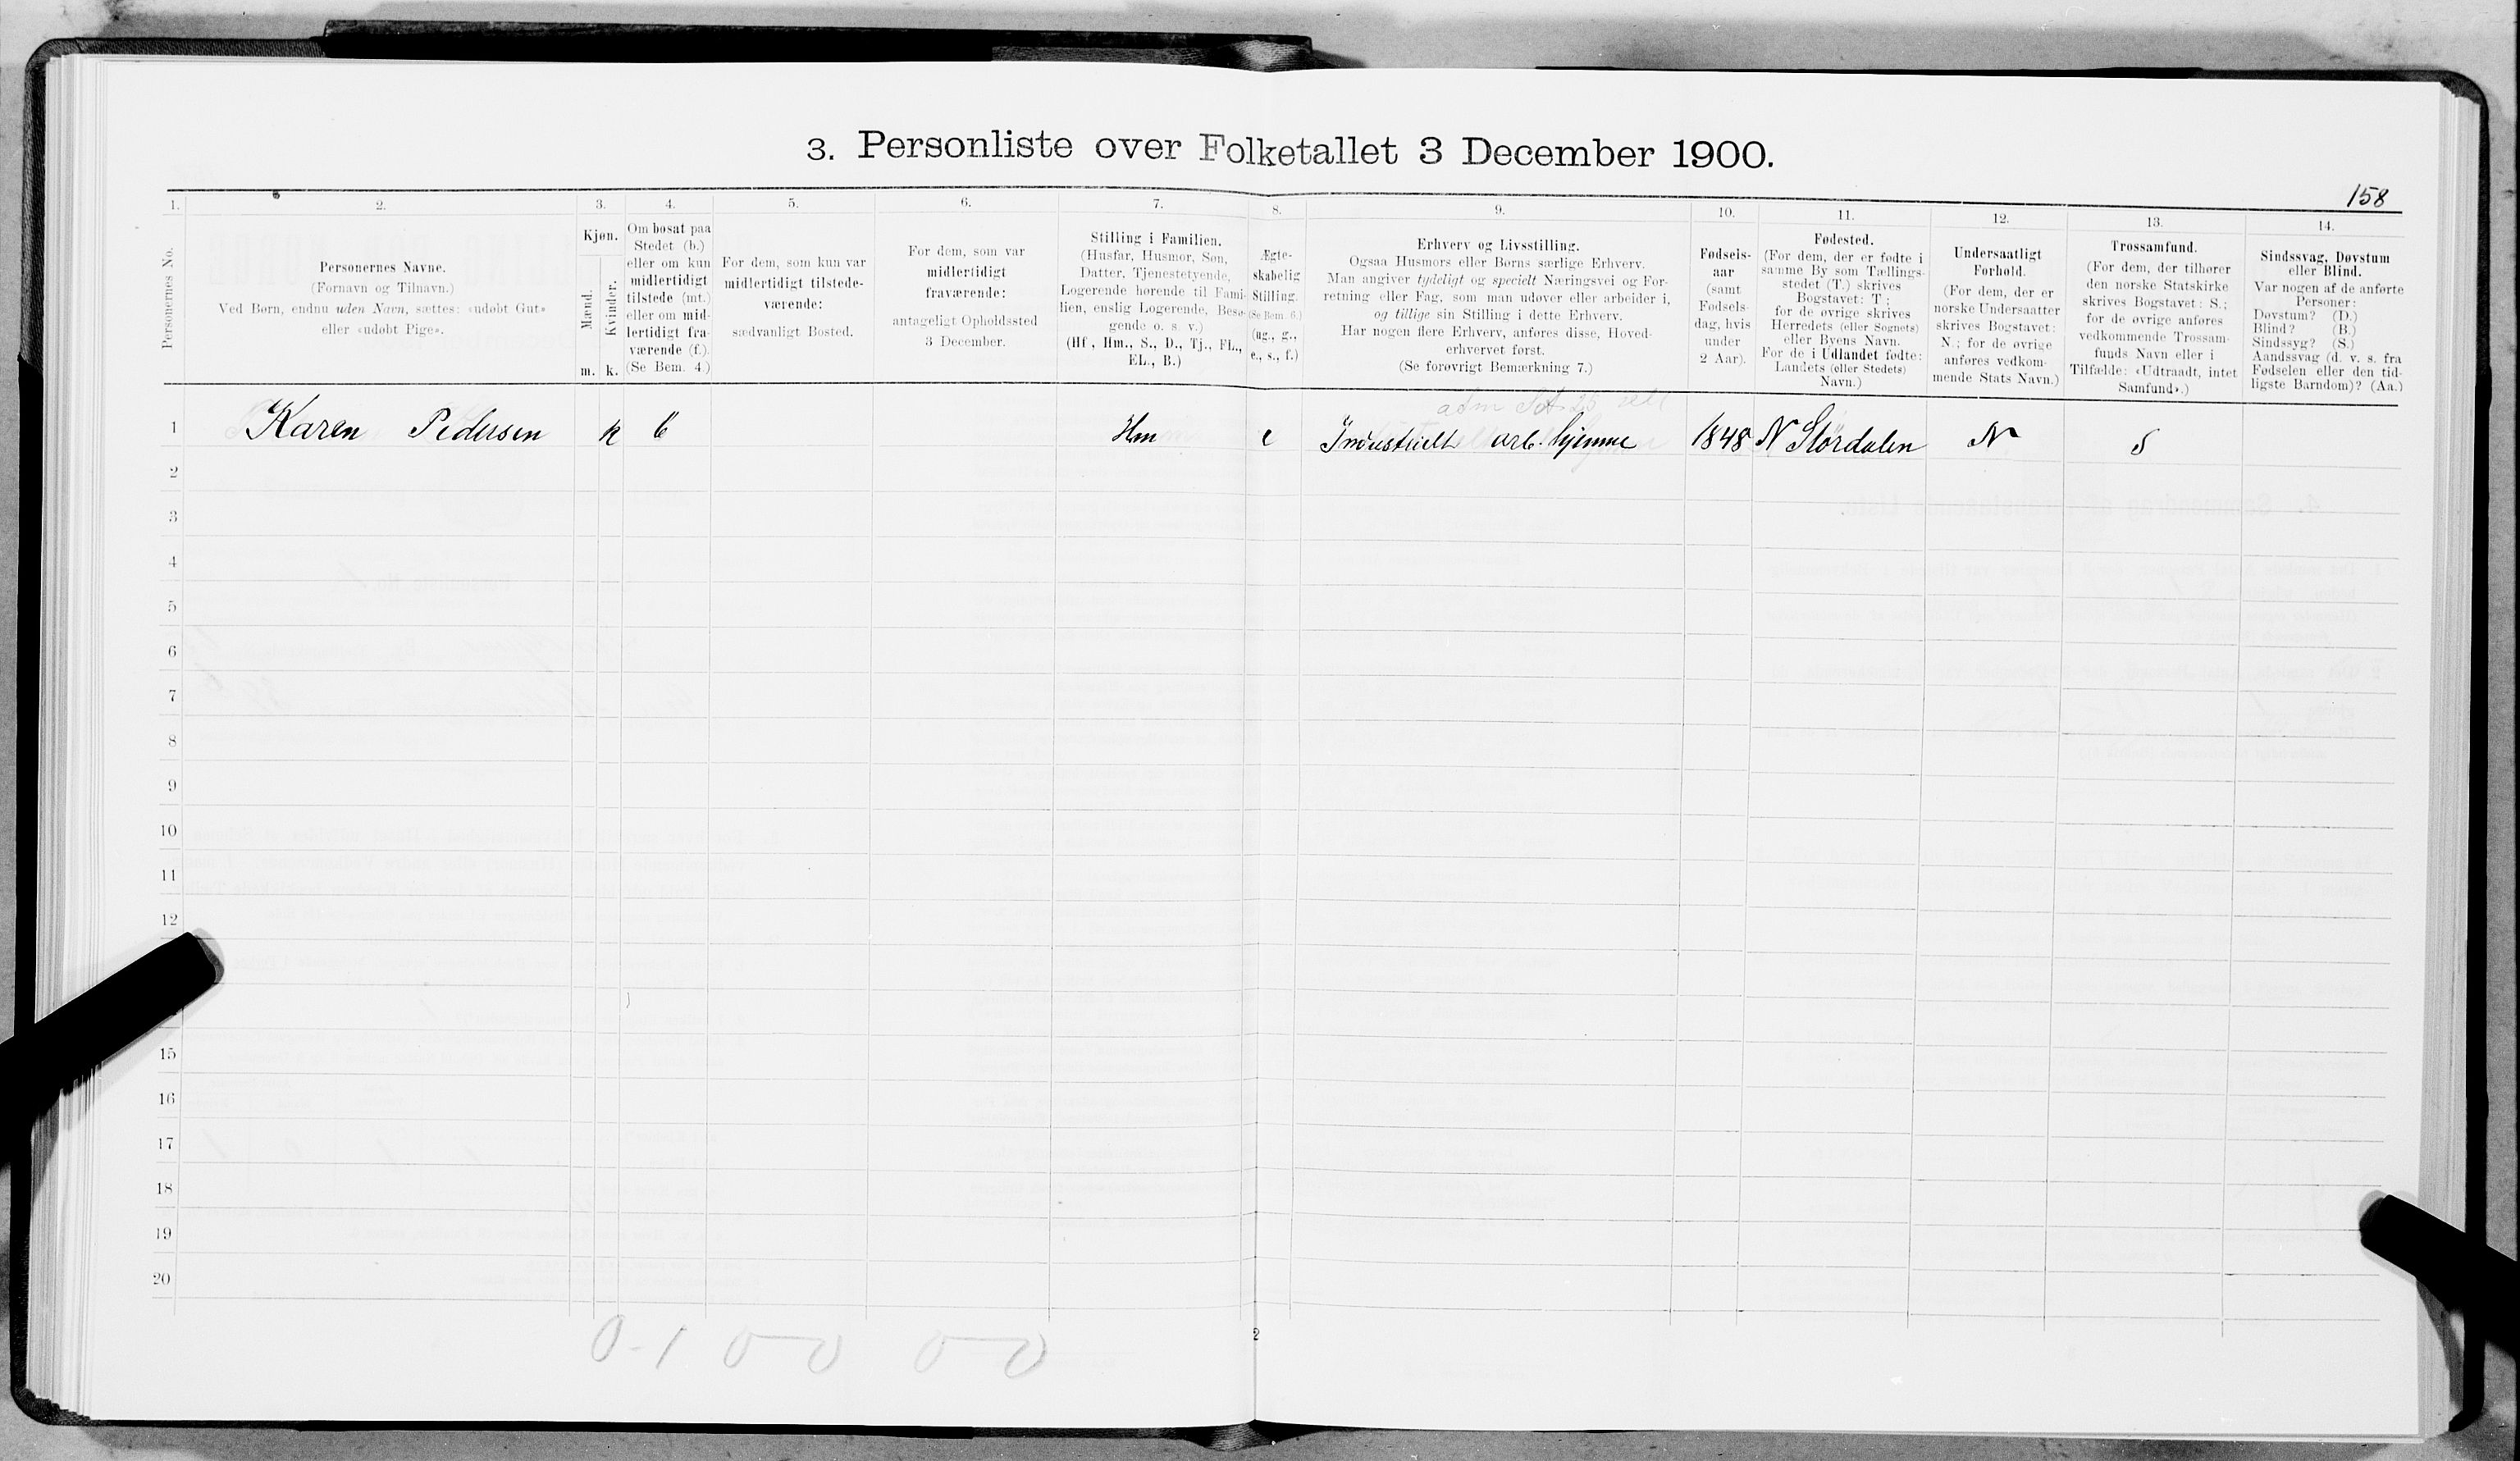 3. Personliste over Folketallet 3 December 1900.
158
1.
Personernes No.
2.
Personernes Navne.
(Fornavn og Tilnavn.)
Ved Børn, endnu uden Navn, sættes: «udøbt Gut»
eller «udøbt Pige».
3.
Kjøn.
Mænd.
Kvinder.
m. k.
4.
Om bosat paa
Stedet (b.)
eller om kun
midlertidigt
tilstede (mt.)
eller om mid-
lertidigt fra-
værende (f.).
(Se Bem. 4.)
5.
For dem, som kun var
midlertidigt tilstede-
værende:
sædvanligt Bosted.
6.
For dem, som var
midlertidigt
fraværende:
antageligt Opholdssted
3 December.
7.
Stilling i Familien.
(Husfar, Husmor, Søn,
Datter, Tjenestetyende,
Logerende hørende til Fami-
lien, enslig Logerende, Besø-
gende o. s. v.)
(Hf., Hm., S., D., Tj., FL.,
EL., B.)
8.
Ægte-
skabelig
Stilling.
(Se Bem. 6.)
(ug., g.,
e., s., f.)
9.
Erhverv og Livsstilling.
Ogsaa Husmors eller Børns særlige Erhverv.
Man angiver tydeligt og specielt Næringsvei og For-
retning eller Fag, som man udøver eller arbeider i,
og tillige sin Stilling i dette Erhverv.
Har nogen flere Erhverv, anføres disse, Hoved-
erhvervet først.
(Se forøvrigt Bemærkning 7.)
10.
Fødsels-
aar
(samt
Fødsels-
dag, hvis
under
2 Aar).
11.
Fødested.
(For dem, der er fødte i
samme By som Tællings-
stedet (T.) skrives
Bogstavet: T;
for de øvrige skrives
Herredets (eller Sognets)
eller Byens Navn.
For de i Udlandet fødte:
Landets (eller Stedets)
Navn.)
12.
Undersaatligt
Forhold.
(For dem, der er
norske Undersaatter
skrives Bogstavet:
N.; for de øvrige
anføres vedkom-
mende Stats Navn.)
13.
Trossamfund.
(For dem, der tilhører
den norske Statskirke
skrives Bogstavet: S.;
for de øvrige anføres
vedkommende Trossam-
funds Navn eller i
Tilfælde: «Udtraadt, intet
Samfund».)
14.
Sindssvag, Døvstum
eller Blind.
Var nogen af de anførte
Personer:
Døvstum? (D.)
Blind? (B.)
Sindssyg? (S.)
Aandssvag (d. v. s. fra
Fødselen eller den tid-
ligste Barndom)? (Aa.)
1 Karen Pedersen k b Hm e Industrielt arb. hjemme 1848 N Stördalen N S
2
3
4
5
6
7
8
9
10
11
12
15
16
17
18
19
20
0-1 0-0 0-0
2